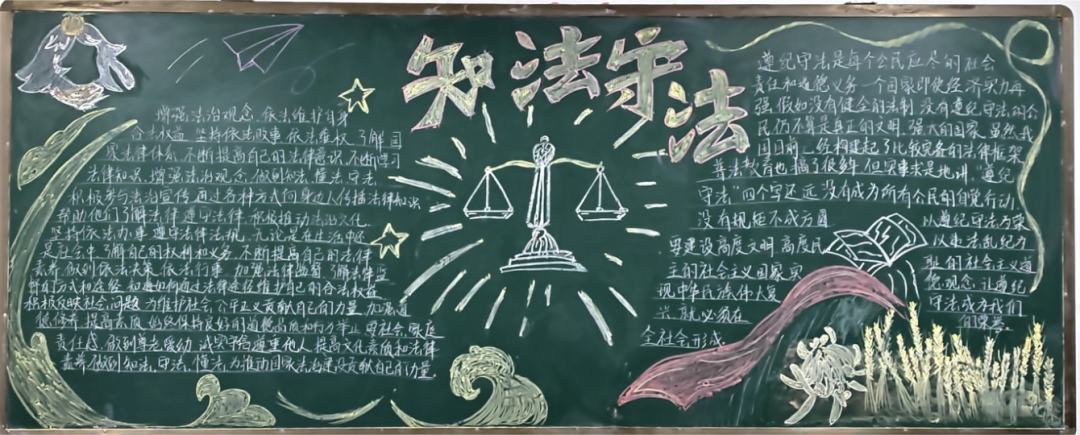 知法守法
增强法治观念、依法维护自身
合法权益 坚持依法办事、依法维权、了解国
家法律体系、不断提高自己的法律意识、不断学习
法律知识、增强法治观念、做到知法、懂法、守法、
积极参与法治宣传 通过各种方式向身边人传播法律知识
帮助他们了解法律 遵守法律 积极推动法治文化
坚持依法办事 遵守法律法规、无论是在生活中还
是社会中 了解自己的权利和义务、不断提高自己的法律
素养 做到依法决策 依法行事 加强法律监督、了解法律监
督的方式和途径 知道如何通过法律途径维护自己的合法权益
积极反映社会问题 为维护社会公平正义贡献自己的力量 加强道
德修养 提高素质 始终保持良好的道德品质和行为举止 担社会 家庭
责任感、做到尊老爱幼 诚实守信 尊重他人 提高文化素质和法律
素养 做到知法、守法、懂法 为推动国家法治建设贡献自己的力量
遵纪守法是每个公民应尽的社会
责任和道德义务 一个国家即使经济实力再
强 假如没有健全的法制 没有遵纪守法的公
民 仍不算是真正的文明 强大的国家 虽然我
国目前已经构建起了比较完备的法律框架
普法教育也搞了很多 但实事求是地讲 "遵纪
守法"四个字还远没有成为所有公民的自觉行动
没有规矩不成方圆
要建设高度文明 高度民
主的社会主义国家 实
现中华民族伟大复
兴 就必须在
全社会形成
以遵纪守法为荣
以违法乱纪为
耻的社会主义道
德观念 让遵纪
守法成为我们
的荣誉